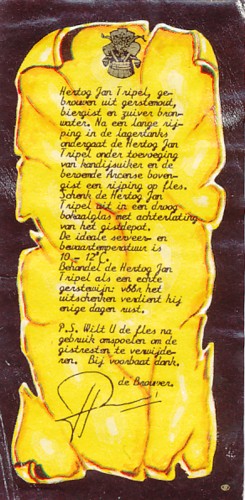 Hertog Jan Tripel, ge-
brouwen uit gerstenout,
biergist en zuiver bron-
water. Na een lange rij-
ping in de lagertanks
ondergaat de Hertog Jan
Tripel onder toevoeging
van kandijsuiker en de
beroemde Arcense boven-
gist een rijping op fles.
Schenk de Hertog Jan
Tripel uit in een droog
bokaalglas met achterlating
van het gistdepot.
De ideale serveer- en
bewaartemperatuur is
10 - 12°C.
Behandel de Hertog Jan
Tripel als een echte
gerstewijn: vóór het
uitschenken verdient hij
enige dagen rust.
P.S. Wilt U de fles na
gebruik omspoelen om de
gistresten te verwijde-
ren. Bij voorbaat dank.
de Brouwer.